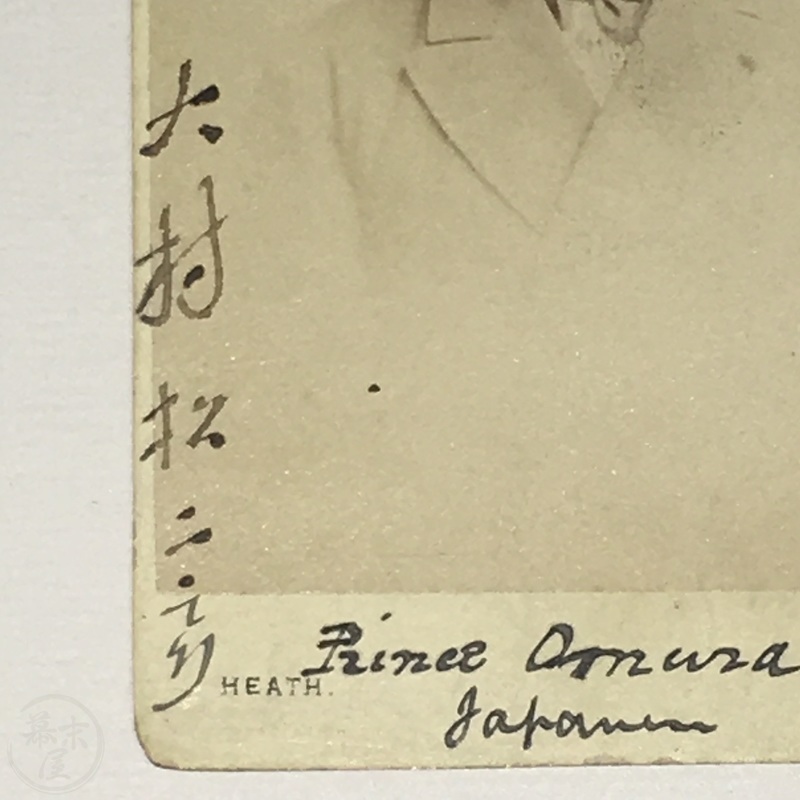 大村松二郎
Prince Omura
HEATH.
Japanese
幕末屋